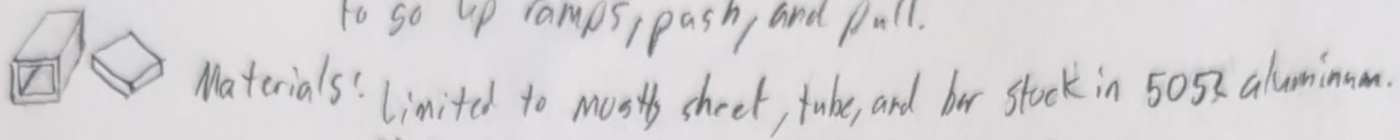 to go up ramps, push, and pull.
Materials: Limited to mostly sheet, tube, and bar stock in 5052 aluminum.